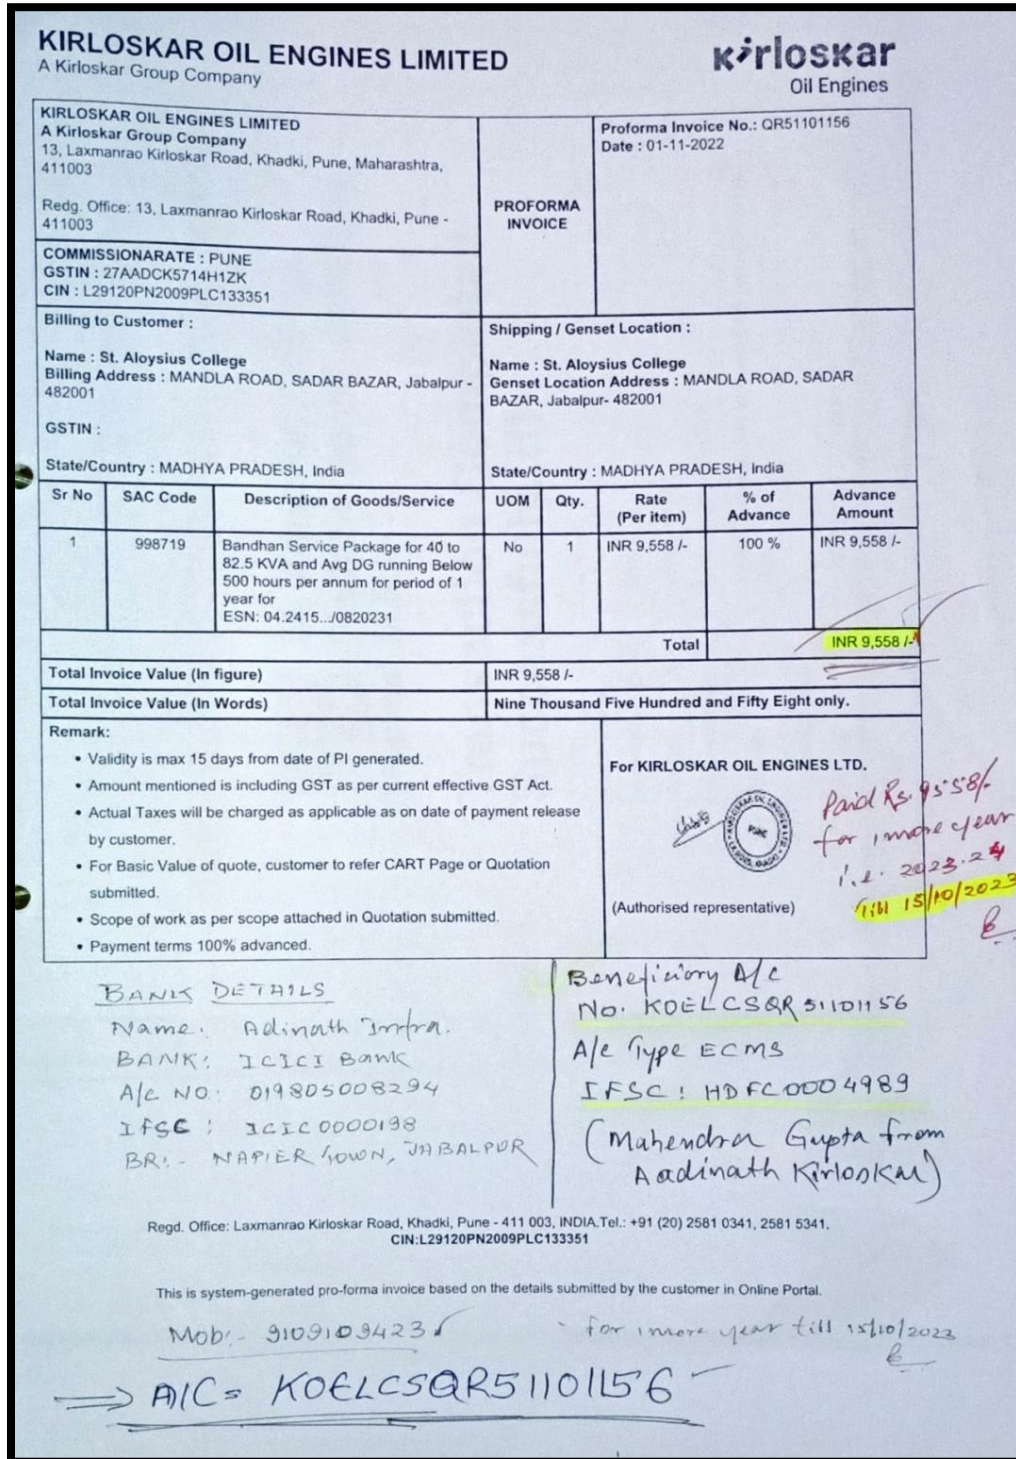 KIRLOSKAR OIL ENGINES LIMITED
A Kirloskar Group Company
kirloskar
Oil Engines
KIRLOSKAR OIL ENGINES LIMITED
A Kirloskar Group Company
13, Laxmanrao Kirloskar Road, Khadki, Pune, Maharashtra,
411003
Redg. Office: 13, Laxmanrao Kirloskar Road, Khadki, Pune -
411003
COMMISSIONARATE : PUNE
GSTIN : 27AADCK5714H1ZK
CIN : L29120PN2009PLC133351
PROFORMA
INVOICE
Proforma Invoice No.: QR51101156
Date : 01-11-2022
Billing to Customer :
Name : St. Aloysius College
Billing Address : MANDLA ROAD, SADAR BAZAR, Jabalpur -
482001
GSTIN :
State/Country : MADHYA PRADESH, India
Shipping / Genset Location :
Name : St. Aloysius College
Genset Location Address : MANDLA ROAD, SADAR
BAZAR, Jabalpur- 482001
State/Country : MADHYA PRADESH, India
Sr No SAC Code Description of Goods/Service UOM Qty. Rate (Per item) % of Advance Advance Amount
1 998719 Bandhan Service Package for 40 to No 1 INR 9,558 /- 100 % INR 9,558 /-
82.5 KVA and Avg DG running Below
500 hours per annum for period of 1
year for
ESN: 04.2415.../0820231
Total INR 9,558 /-
Total Invoice Value (In figure) INR 9,558 /-
Total Invoice Value (In Words) Nine Thousand Five Hundred and Fifty Eight only.
Remark:
• Validity is max 15 days from date of PI generated.
• Amount mentioned is including GST as per current effective GST Act.
• Actual Taxes will be charged as applicable as on date of payment release
by customer.
• For Basic Value of quote, customer to refer CART Page or Quotation
submitted.
• Scope of work as per scope attached in Quotation submitted.
• Payment terms 100% advanced.
For KIRLOSKAR OIL ENGINES LTD.
(Authorised representative)
Paid Rs. 9558/-
for 1 more year
i.e. 2023-24
Till 15/10/2023
BANK DETAILS
Name: Adinath Infra.
BANK: ICICI Bank
A/c NO: 019805008294
IFSC : ICIC0000198
BR:- NAPIER TOWN, JABALPUR
Beneficiary A/c
No. KOELCSQR51101156
A/c Type ECMS
IFSC: HDFC0004989
(Mahendra Gupta from
Aadinath Kirloskar)
Regd. Office: Laxmanrao Kirloskar Road, Khadki, Pune - 411 003, INDIA.Tel.: +91 (20) 2581 0341, 2581 5341.
CIN:L29120PN2009PLC133351
This is system-generated pro-forma invoice based on the details submitted by the customer in Online Portal.
Mob:- 9109109423
- for 1 more year till 15/10/2023
A/C= KOELCSQR51101156